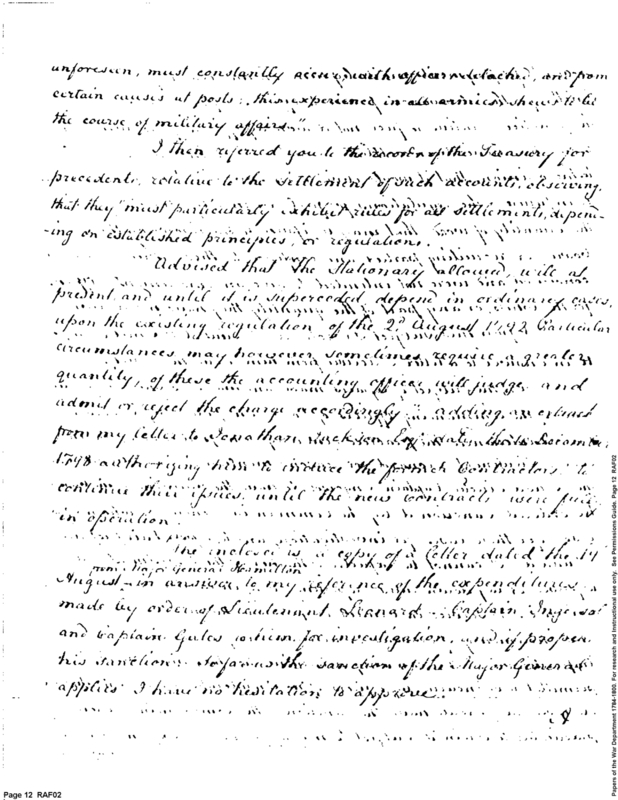 unforeseen, must constantly occur with officers detached, and from
certain causes at posts; this experience in all armies shews to be
the course of military affairs."
I then referred you to the records of the Treasury for
precedents, relative to the settlement of such accounts, observing,
that they must particularly exhibit rules for all settlements, depend-
-ing on established principles, or regulations.
Advised that "The Stationary allowed, will at
present, and until it is superceded, depend in ordinary cases,
upon the existing regulation of the 2d August 1792. Particular
circumstances may however sometimes require a greater
quantity, of these the accounting officer will judge and
admit or reject the charge accordingly"; adding an extract
from my letter to Jonathan Jackson Esqr dated Decem
1798 authorizing him to induce the former Contractors to
continue their issues until the new contracts were fully
in operation.
The inclosed is a copy of a letter dated the 14
from Major General Hamilton
August in answer to my reference of the expenditures
made by order of Lieutenant Leonard Captain Ingersol
and Captain Gates to him for investigation, and if proper
his sanction. So far as the sanction of the Major General
applies I have no hesitation to approve.
Page 12 RAF02
Papers of the War Department 1784-1800. For research and instructional use only. See Permissions Guide. Page 12 RAF02